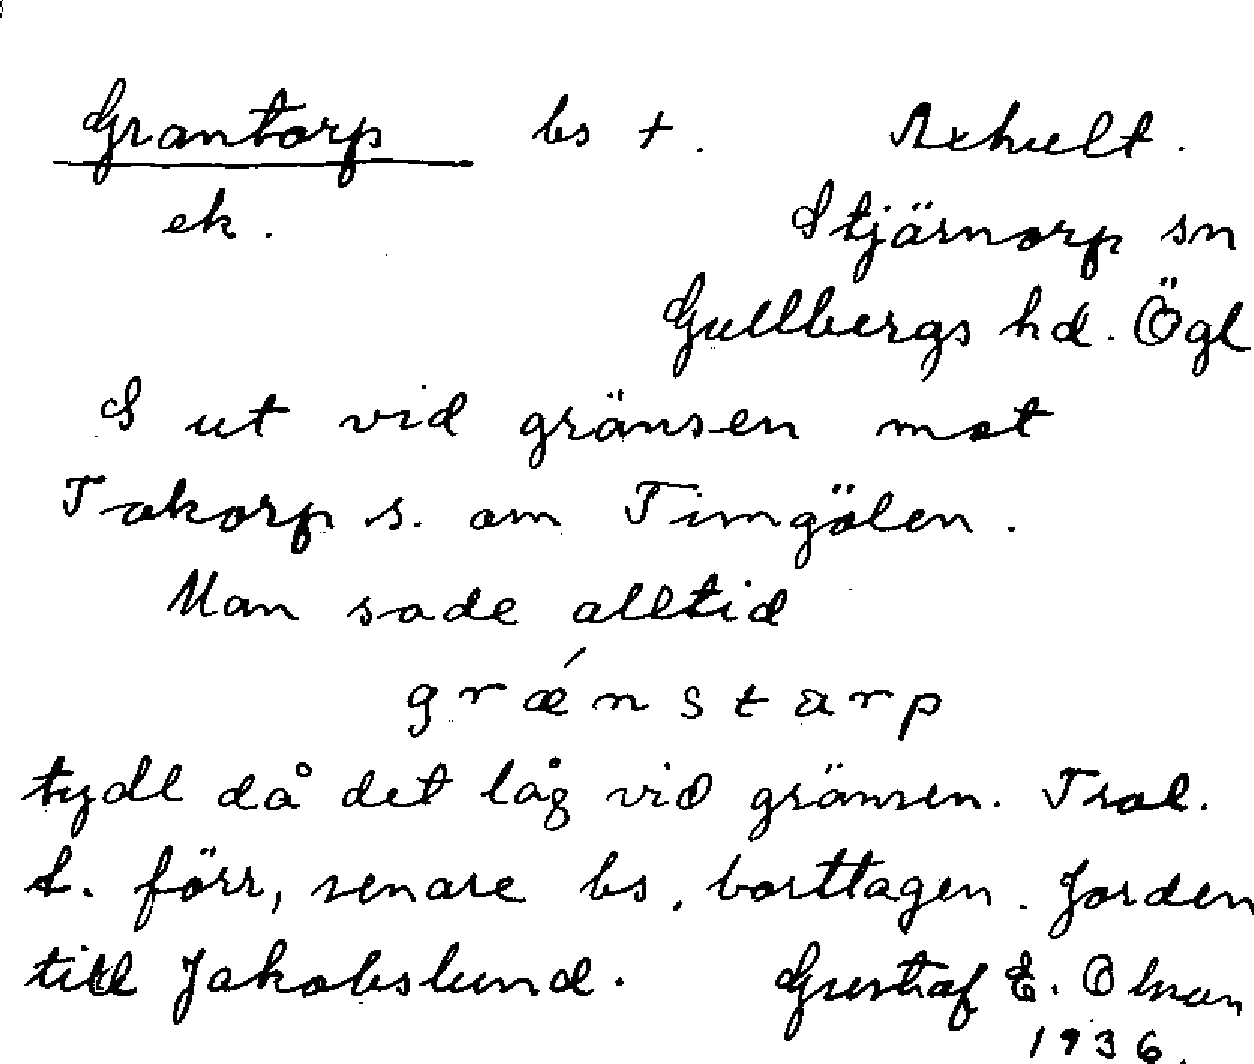 Grantorp bs +. Axhult.
ek. Stjärnorp sn
Gullbergs hd. Ögl
S ut vid gränsen mot
Takorp s. om Timgölen.
Man sade alltid
grǽnstarp
tydl då det låg vid gränsen. Trol.
t. förr, senare bs, borttagen. Jorden
till Jakobslund. Gustaf E. Ohman
1936.